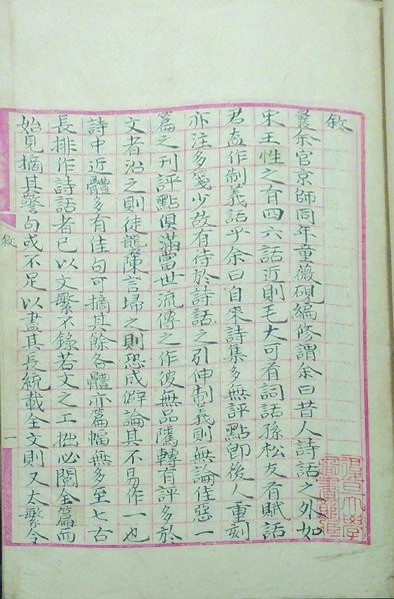 敘
曩余官京師同年童薇硯編修謂余曰昔人詩話之外如
宋王性之有四六話近則毛大可有詞話孫松友有賦話
君盍作制義話乎余曰自來詩集多無評點即後人重刻
亦注多箋少故有待於詩話之引伸制義則無論佳惡一
篇之刊評點俱滿當世流傳之作彼無品騭轉有評多於
文者沿之則徒襲陳言埽之則恐成僻論其不易作一也
詩中近體多有佳句可摘其餘各體亦篇幅無多至七古
長排作詩話者已以文繁不錄若文之工拙必閱全篇而
始見摘其警句或不足以盡其長統載全文則又太繁今
敘
一